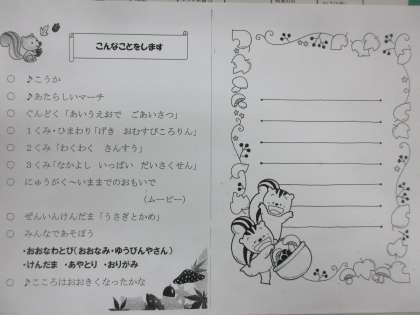 こんなことをします
○ ♪こうか
○ ♪あたらしいマーチ
○ ぐんどく「あいうえおで ごあいさつ」
○ 1くみ・ひまわり「げき おむすびころりん」
○ 2くみ「わくわく さんすう」
○ 3くみ「なかよし いっぱい だいさくせん」
○ にゅうがく～いままでのおもいで
(ムービー)
○ ぜんいんけんだま「うさぎとかめ」
○ みんなであそぼう
・おおなわとび(おおなみ・ゆうびんやさん)
・けんだま ・あやとり ・おりがみ
○ ♪こころはおおきくなったかな